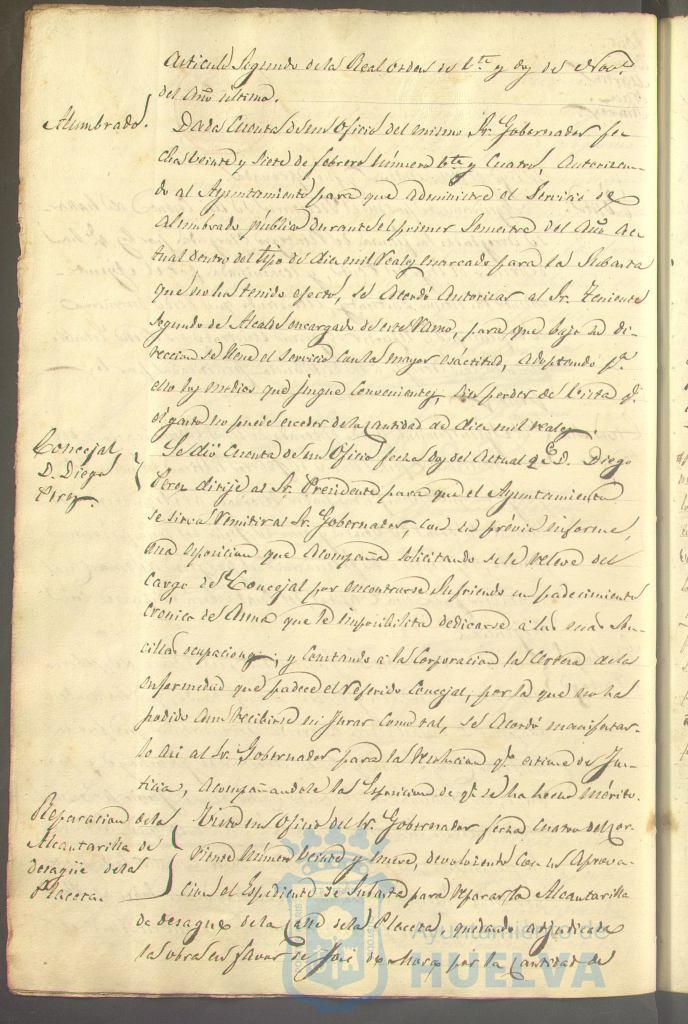 Articulo Segundo de la Real orden de bte y dos de Nove
del Año ultimo.
Alumbrado.
Dada Cuenta de un Oficio del mismo Sr. Gobernador fe-
cha veinte y siete de febrero número bte y Cuatro, Autorizan-
do al Ayuntamiento para que administre el Servicio de
Alumbrado público durante el primer Semestre del Año Ac-
tual dentro del tipo de diez mil reales marcado para la Subasta
que no ha tenido efecto, se Acordó Autorizar al Sr. Teniente
Segundo de Alcalde encargado de este Ramo, para que bajo su di-
reccion se llene el servicio con la mayor esactitud, adoptando pa
ello los medios que juzgue Convenientes, sin perder de vista qe
el gasto no puede esceder de la Cantidad de diez mil reales.
Concejal
D. Diego
Perez.
Se dió Cuenta de un Oficio fecha dos del Actual q. D. Diego
Perez dirije al Sr. Presidente para que el Ayuntamiento
se sirva remitir al Sr. Gobernador, con su prévio informe,
una esposicion que Acompaña solicitando se le releve del
Cargo de Concejal por encontrarse Sufriendo un padecimiento
Crónico de Asma que le imposibilita dedicarse a las mas Sen-
cillas ocupaciones; y Constando a la Corporacion la Certeza de la
enfermedad que padece el referido Concejal, por la que no ha
podido aun recibirse ni Jurar Como tal, se Acordó manifestar-
lo asi al Sr. Gobernador para la resolucion qe estime de Jus-
ticia, Acompañandole la Esposicion de qe se ha hecho mérito.
Reparacion de la
Alcantarilla de
desagüe de la
Placeta.
Visto un Oficio del Sr. Gobernador fecha Cuatro del Cor-
riente número Veinte y nueve, devolviendo Con su Aproba-
cion el Espediente de Subasta para reparar la Alcantarilla
de desagüe de la Calle de la Placeta, quedando adjudicada
la obra en favor de José de Mora por la Cantidad de
Ayuntamiento de
HUELVA